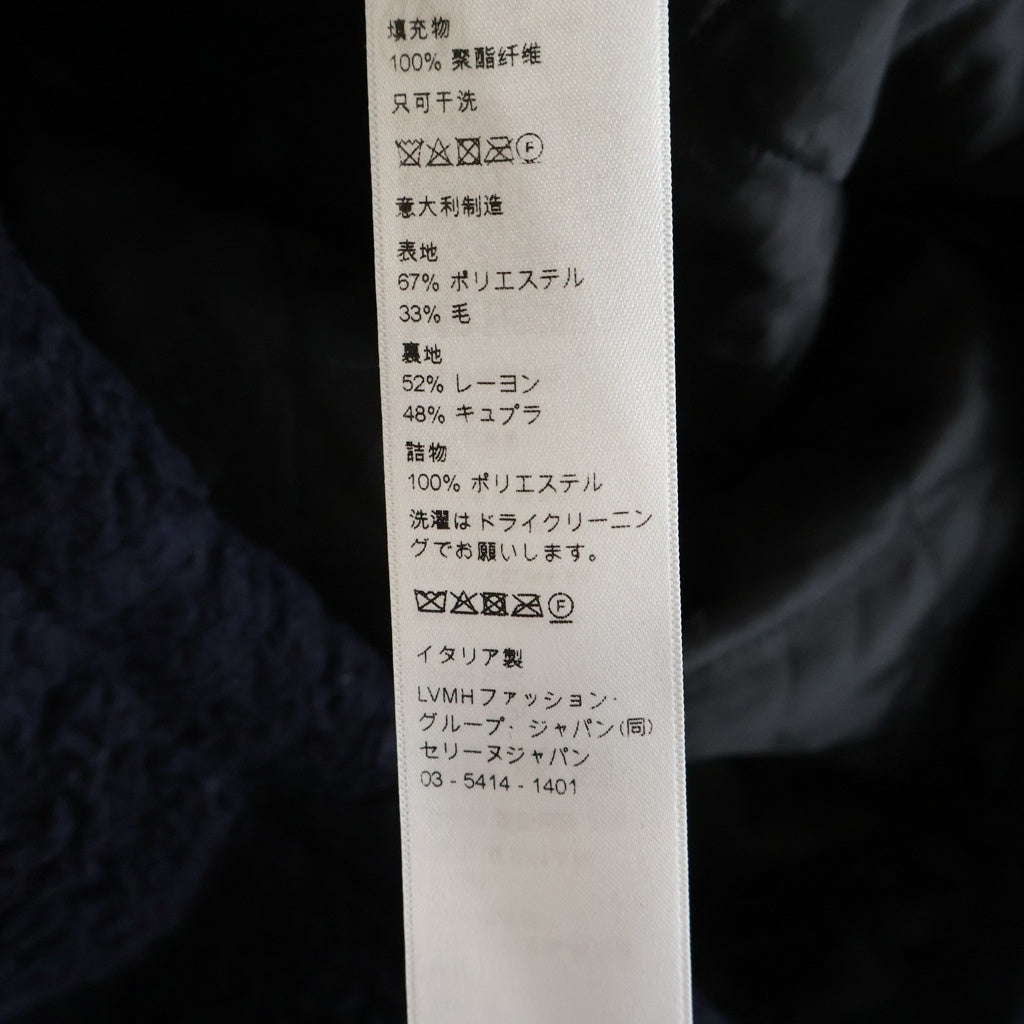 填充物
100% 聚酯纤维
只可干洗
F
意大利制造
表地
67% ポリエステル
33% 毛
裏地
52% レーヨン
48% キュプラ
詰物
100% ポリエステル
洗濯はドライクリーニン
グでお願いします。
F
イタリア製
LVMHファッション·
グループ· ジャパン(同)
セリーヌジャパン
03 - 5414 - 1401